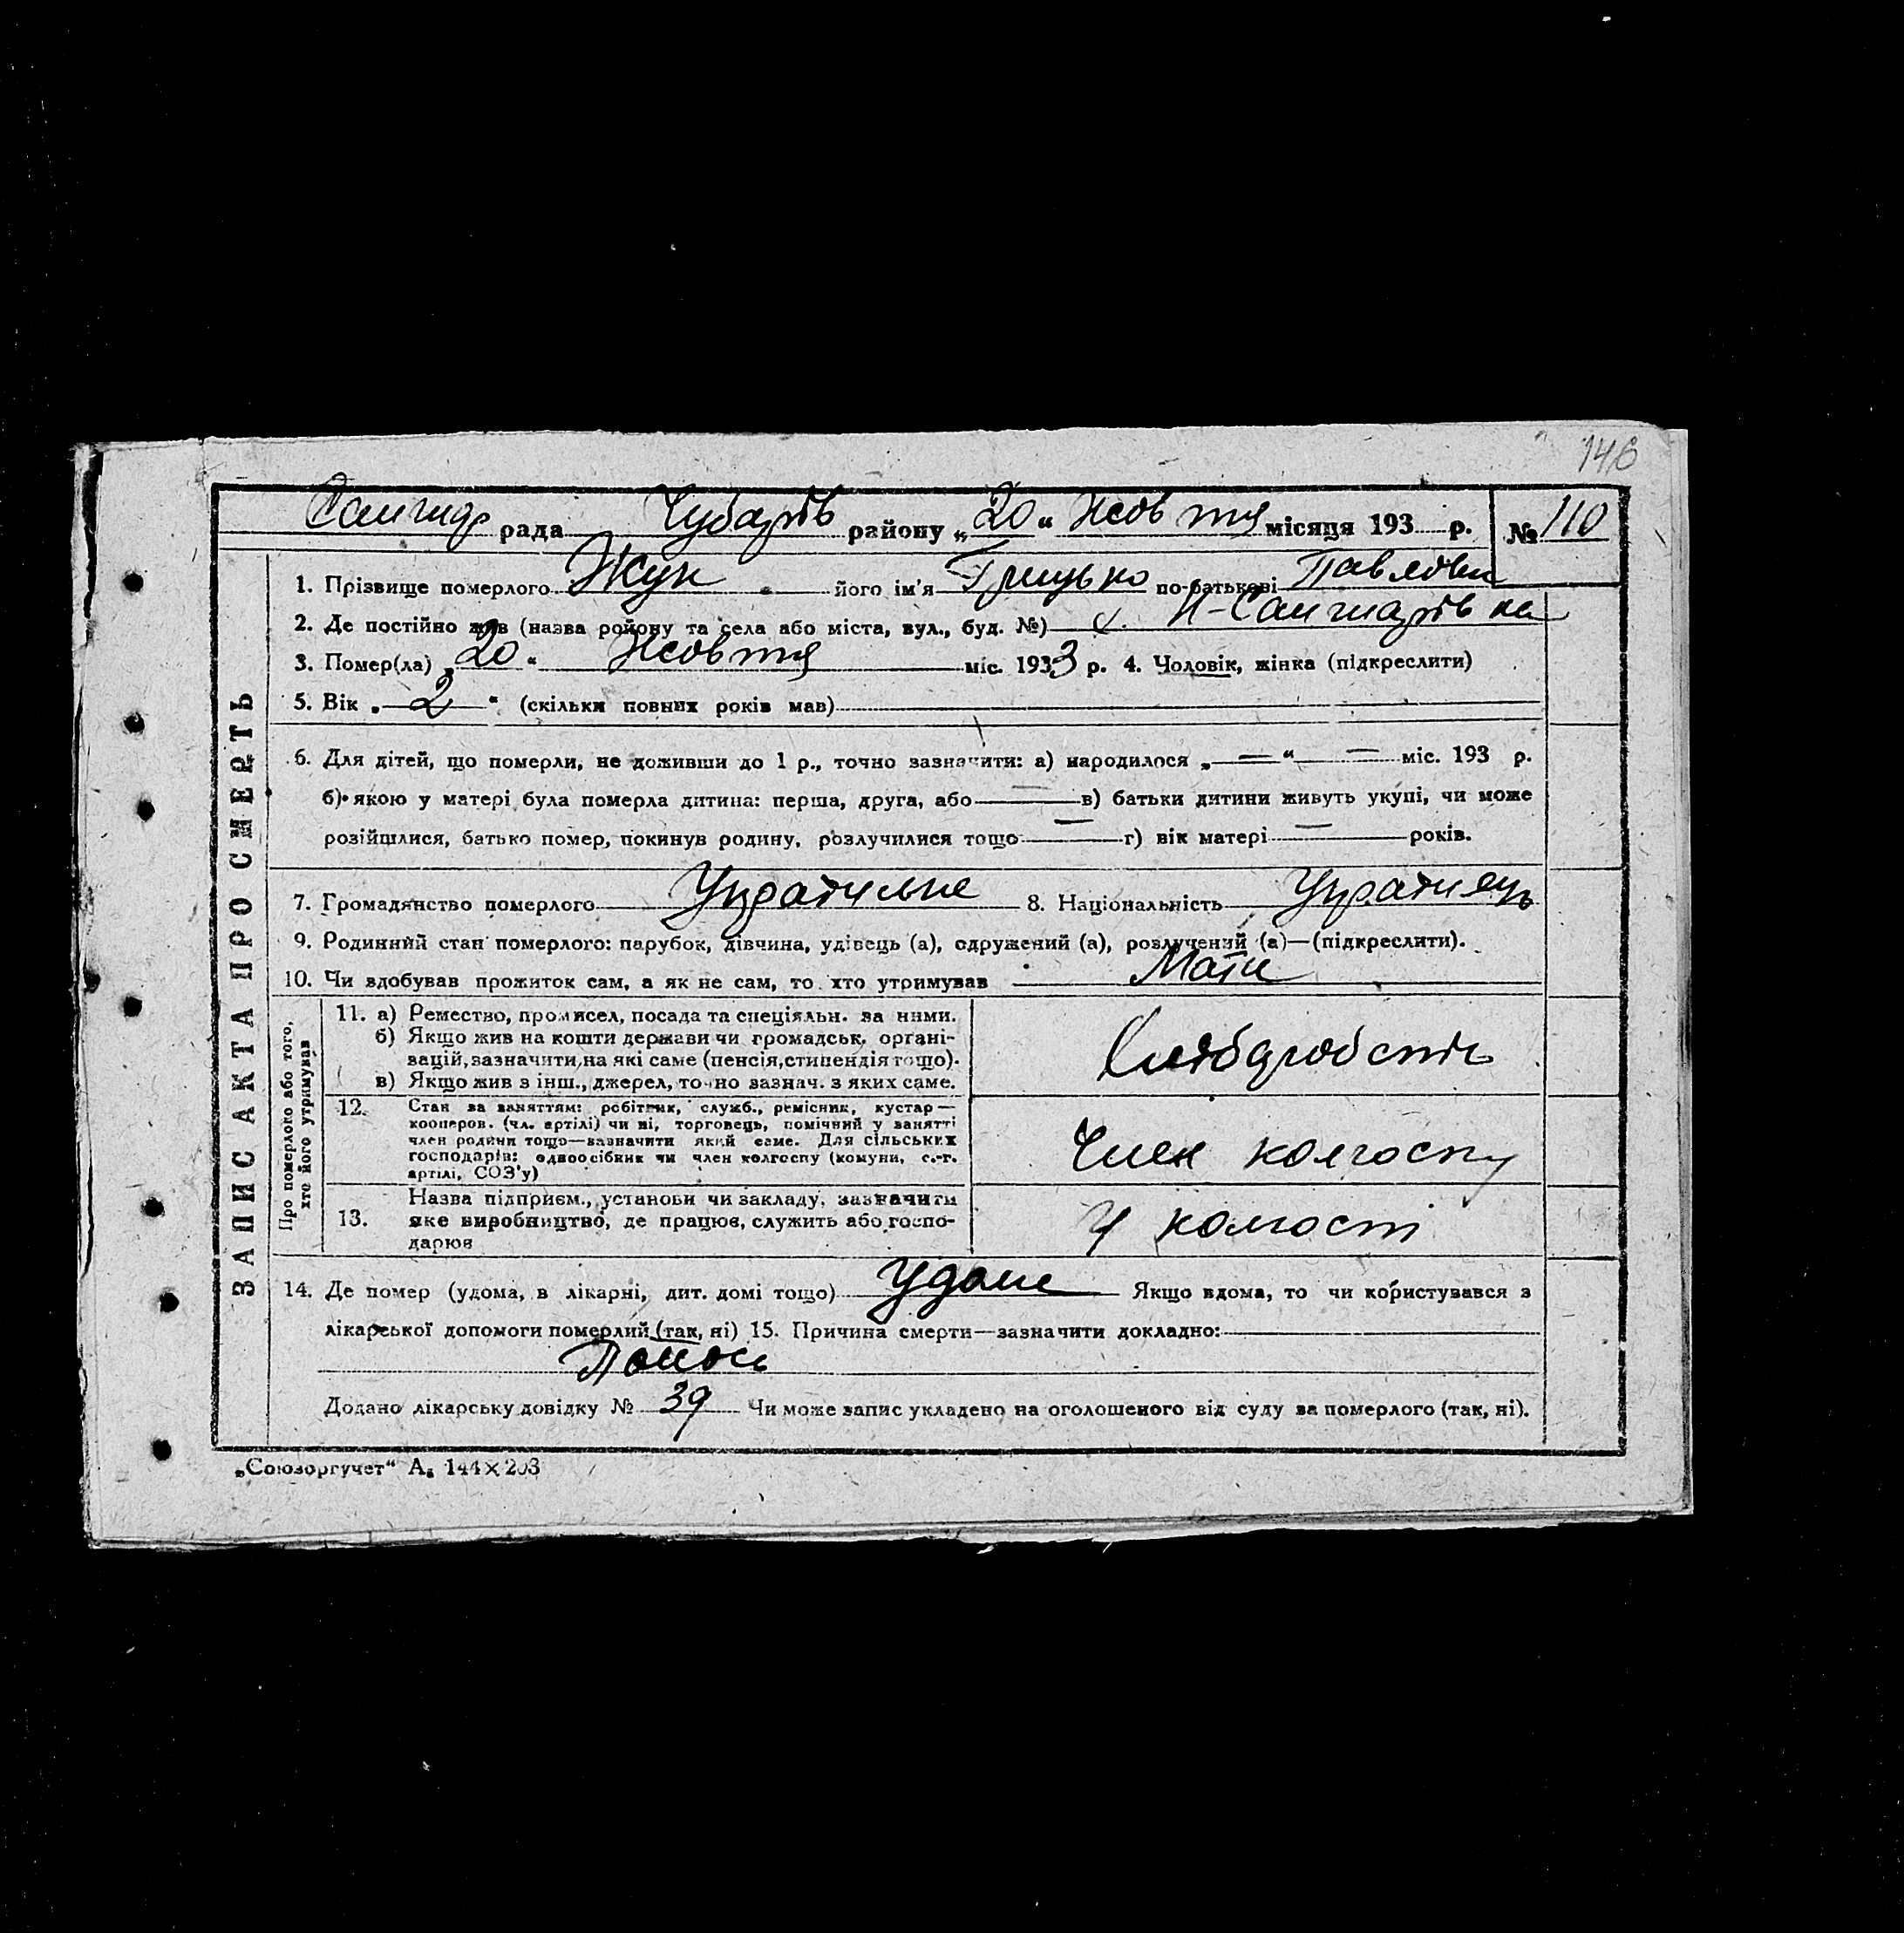 146
Сангидр рада Чубарів району „20“ Жовтня місяця 193 р. № 110
1. Прізвище померлого Жук його ім'я Грицько по-батькові Павлович
2. Де постійно жив (назва району та села або міста, вул., буд. №) с. Н-Санжарівка
3. Помер(ла) „20“ Жовтня міс. 1933 р. 4. Чоловік, жінка (підкреслити)
5. Вік „2“ (скільки повних років мав)
6. Для дітей, що померли, не доживши до 1 р., точно зазначити: а) народилося „—“ — міс. 193 р.
б) якою у матері була померла дитина: перша, друга, або — в) батьки дитини живуть укупі, чи може
розійшлися, батько помер, покинув родину, розлучилися тощо — г) вік матері — років.
7. Громадянство померлого 8. Національність Українець
9. Родинний стан померлого: парубок, дівчина, удівець (а), одружений (а), розлучений (а)—(підкреслити).
10. Чи здобував прожиток сам, а як не сам, то хто утримував Мати
ЗАПИС АКТА ПРО СМЕРТЬ
Про померлоко або того,
хто його утримував
11. а) Ремество, промисел, посада та спеціяльн. за ними.
б) Якщо жив на кошти держави чи громадськ. органі-
зацій, зазначити, на які саме (пенсія, стипендія тощо).
в) Якщо жив з інш., джерел, точно зазнач. з яких саме.
12. Стан за заняттям: робітник, служб., ремісник, кустар—
кооперов. (чл. артілі) чи ні, торговець, помічний у занятті
член родини тощо—зазначити який саме. Для сільських
господарів: одноосібник чи член колгоспу (комуни, с.-г.
артілі, СОЗ'у)
Член колгоспу
13. Назва підприєм., установи чи закладу, зазначити
яке виробництво, де працює, служить або госпо-
дарює
У колгоспі
14. Де помер (удома, в лікарні, дит. домі тощо) Удома Якщо вдома, то чи користувався з
лікарської допомоги померлий (так, ні) 15. Причина смерти—зазначити докладно:
Понос
Додано лікарську довідку № 39 Чи може запис укладено на оголошеного від суду за померлого (так, ні).
„Союзоргучет“ А₅ 144×203